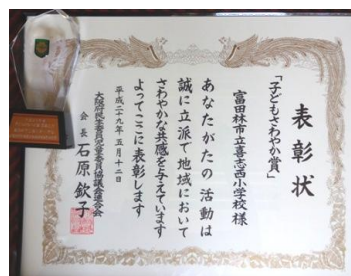 表彰状
「子どもさわやか賞」
富田林市立喜志西小学校 様
あなたがたの活動は
誠に立派で地域において
さわやかな共感を与えています
よってここに表彰します
平成二十九年五月十二日
大阪府民生委員児童委員協議会連合会
会長 石原 欽子